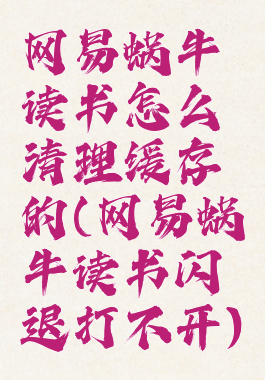 网易蜗牛
读书怎么
清理缓存
的(网易蜗
牛读书闪
退打不开)